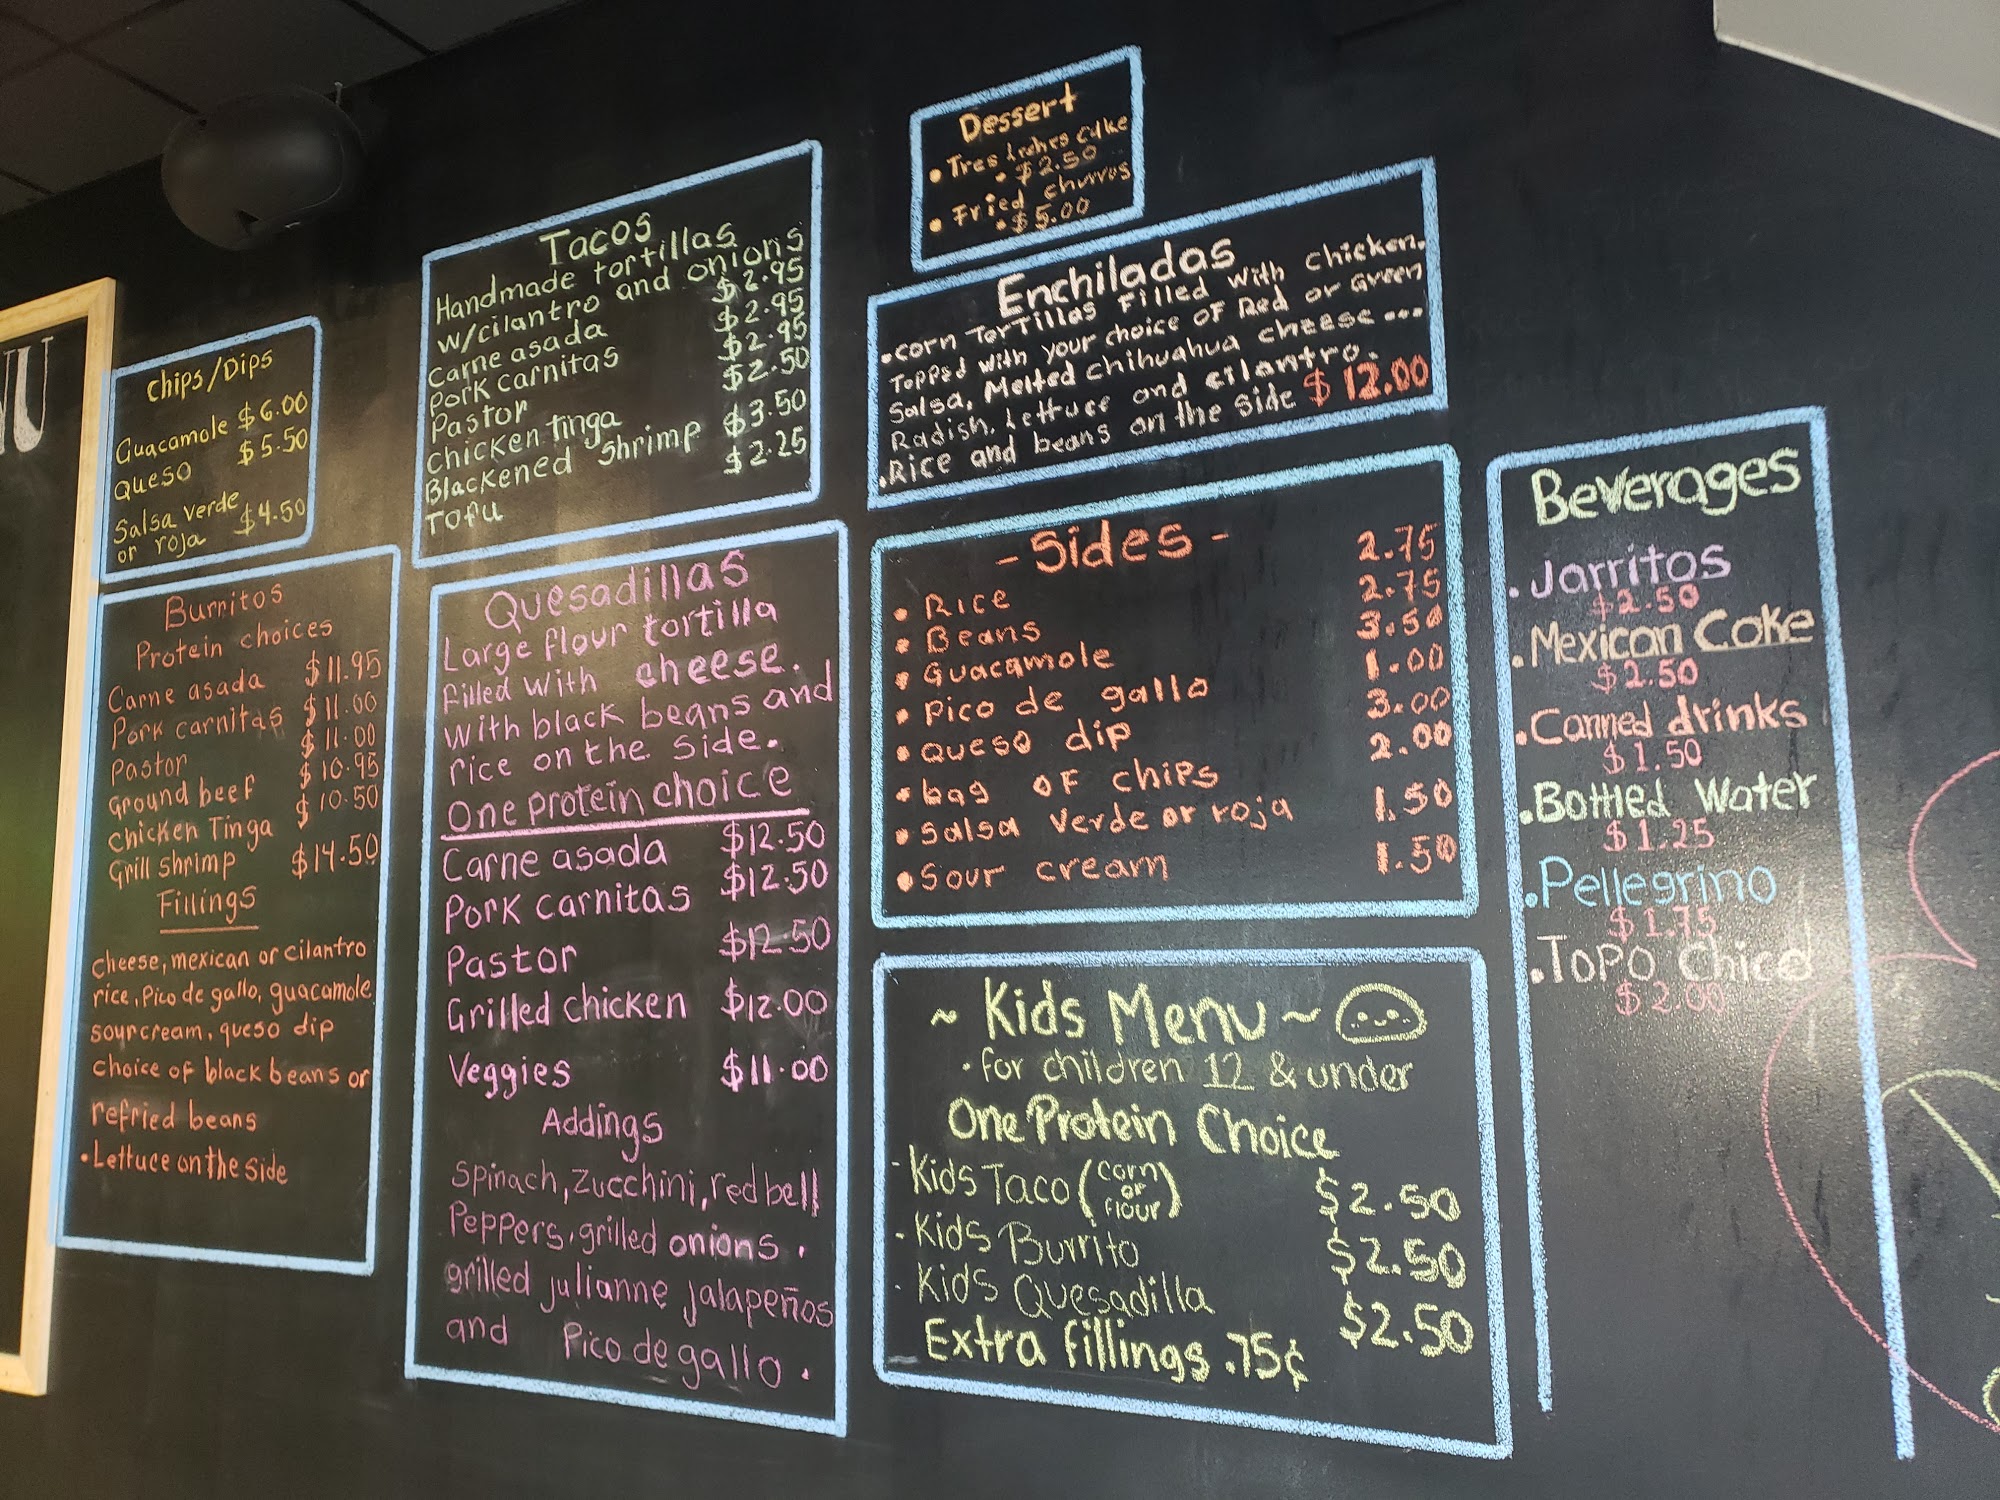 NU
Chips/Dips
Guacamole $6.00
Queso $5.50
Salsa verde
or roja $4.50
Burritos
Protein choices
Carne asada $11.95
Pork carnitas $11.00
Pastor $11.00
Ground beef $10.95
Chicken Tinga $10.50
Grill shrimp $14.50
Fillings
cheese, mexican or cilantro
rice, Pico de gallo, guacamole
sour cream, queso dip
choice of black beans or
refried beans
• Lettuce on the side
Tacos
Handmade tortillas
w/cilantro and onions
Carne asada $2.95
Pork carnitas $2.95
Pastor $2.95
Chicken tinga $2.50
Blackened Shrimp $3.50
Tofu $2.25
Quesadillas
Large flour tortilla
filled with cheese.
With black beans and
rice on the side.
One protein choice
Carne asada $12.50
Pork carnitas $12.50
Pastor $12.50
Grilled chicken $12.00
Veggies $11.00
Addings
Spinach, zucchini, red bell
Peppers, grilled onions,
grilled julianne jalapeños
and Pico de gallo.
Dessert
• Tres leches cake
• $2.50
• Fried churros
• $5.00
Enchiladas
•Corn Tortillas Filled with chicken.
Topped with your choice of Red or Green
Salsa, Melted chihuahua cheese...
Radish, Lettuce and cilantro.
•Rice and beans on the side $12.00
- Sides -
• Rice 2.75
• Beans 2.75
• Guacamole 3.50
• Pico de gallo 1.00
• Queso dip 3.00
• bag of chips 2.00
• Salsa verde or roja 1.50
• Sour cream 1.50
~ Kids Menu ~
• for children 12 & under
One Protein Choice
- Kids Taco (corn or flour) $2.50
- Kids Burrito $2.50
- Kids Quesadilla $2.50
Extra fillings .75¢
Beverages
• Jarritos
$2.50
• Mexican Coke
$2.50
• Canned drinks
$1.50
• Bottled Water
$1.25
• Pellegrino
$1.75
• Topo Chico
$2.00